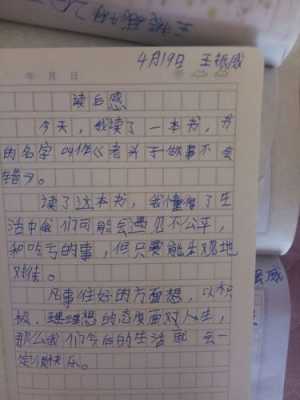 4月19日 王铌威
年 月 日
读后感
今天，我读了一本书，书
的名字叫作《老头子做事不会
错》。
读了这本书，我懂得了生
活中我们可能会遇见不公平，
和吃亏的事，但只要能乐观地
对待。
凡事往好的方面想，以积
极、理想的态度面对人生，
那么我们今后的生活就会一
定很快乐。